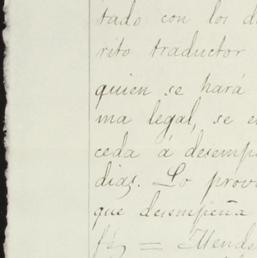 tado con los d
rito traductor
quien se hará
ma legal, se e
ceda á desemp
dias. Lo prov
que desempeña
fz = Mende